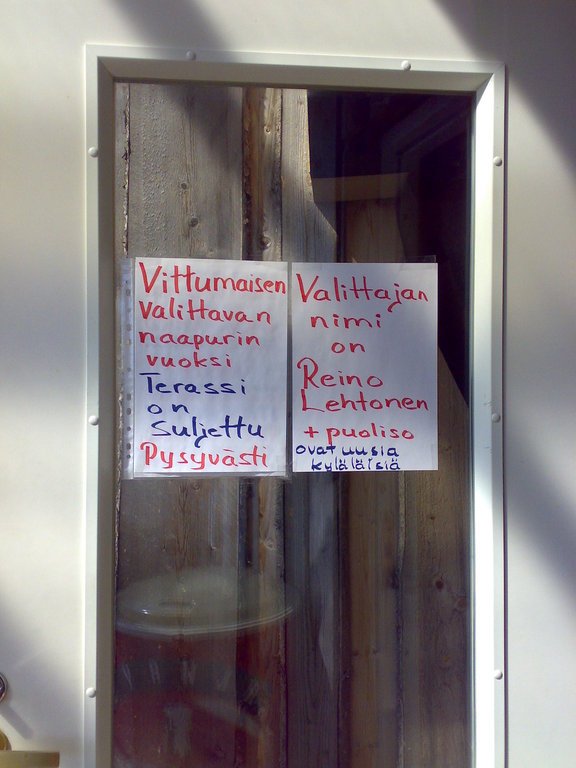 Vittumaisen
valittavan
naapurin
vuoksi
Terassi
on
suljettu
Pysyvästi
Valittajan
nimi
on
Reino
Lehtonen
+ puoliso
ovat uusia
kyläläisiä